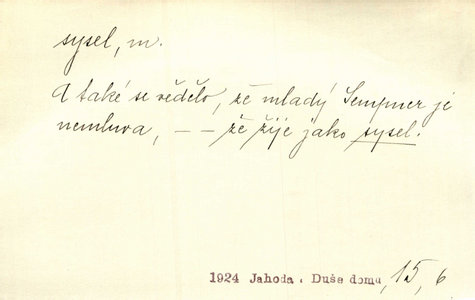 sysel, m.
A také se vědělo, že mladý Sempner je
nemluva, – – že žije jako sysel.
1924 Jahoda, Duše domu, 15, 6